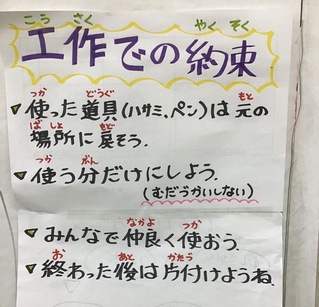 こう さく やく そく
工作での約束
つか どうぐ もと
使った道具(ハサミ、ペン)は元の
ばしょ もど
場所に戻そう.
つか ぶん
使う分だけにしよう.
(むだづかいしない)
なかよ つか
みんなで仲良く使おう.
お あと かたづ
終わった後は片付けようね.